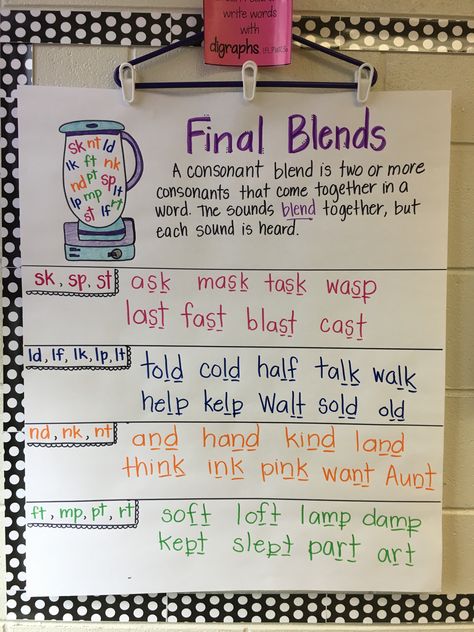 write words
with
digraphs
Final Blends
A consonant blend is two or more
consonants that come together in a
word. The sounds blend together, but
each sound is heard.
sk nt ld
lk ft nk
nd pt sp
lp mp lt
st lf rt
sk, sp, st
ask mask task wasp
last fast blast cast
ld, lf, lk, lp, lt
told cold half talk walk
help kelp Walt sold old
nd, nk, nt
and hand kind land
think ink pink want Aunt
ft, mp, pt, rt
soft loft lamp damp
kept slept part art